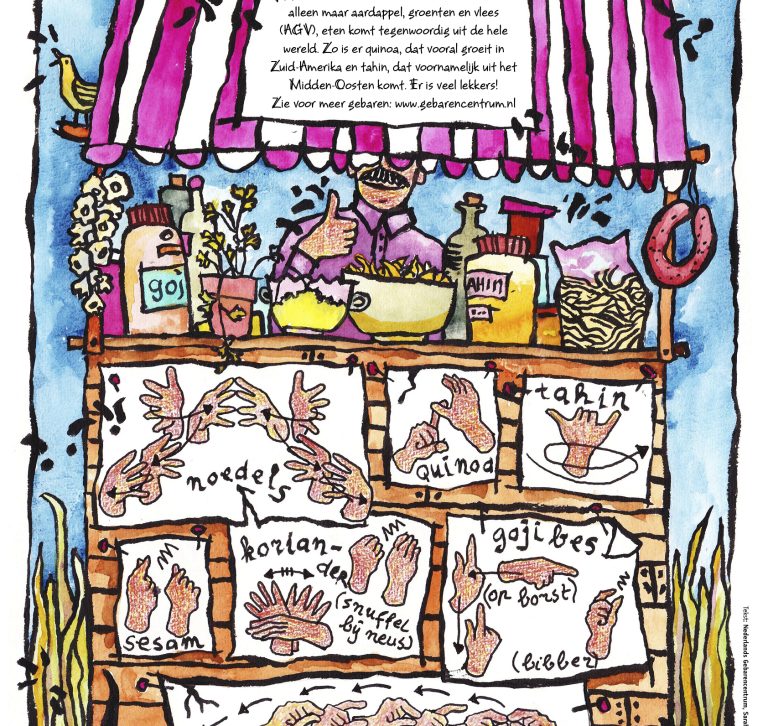 alleen maar aardappel, groenten en vlees
(AGV), eten komt tegenwoordig uit de hele
wereld. Zo is er quinoa, dat vooral groeit in
Zuid-Amerika en tahin, dat voornamelijk uit het
Midden-Oosten komt. Er is veel lekkers!
Zie voor meer gebaren: www.gebarencentrum.nl
goj
AHIN
noedels
quinoa
tahin
sesam
korian-
der
(snuffel
bij neus)
goji bes
(op borst)
(bibber)
Tekst: Nederlands Gebarencentrum, Saral